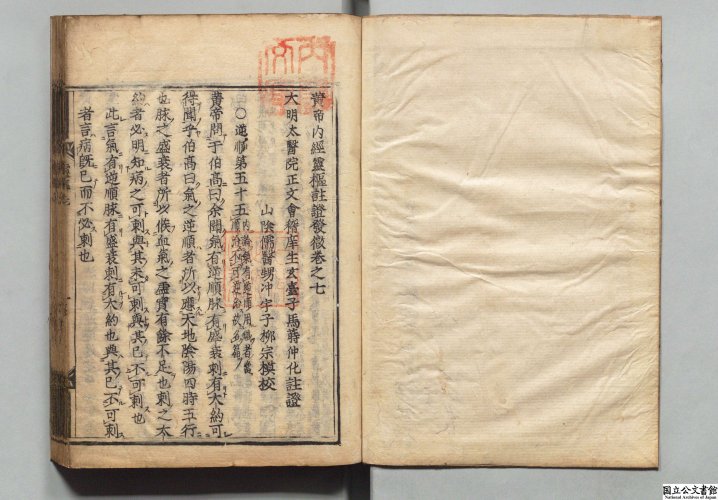 黄帝内經靈樞註證發微卷之七
大明太醫院正文會稽庠生玄臺子馬蒔仲化註證
山陰儒醫甥冲宇子柳宗模校
○逆順第五十五
黄帝問于伯高曰余聞氣有逆順脉有盛衰刺有大約可
得聞乎伯高曰氣之逆順者所以應天地陰陽四時五行
也脉之盛衰者所以候血氣之虚實有餘不足也刺之大
約者必明知病之可刺與其未可刺與其已不可刺也
此言氣有逆順脉有盛衰刺有大約也與其已不可刺
者言病旣已而不必刺也
国立公文書館
National Archives of Japan